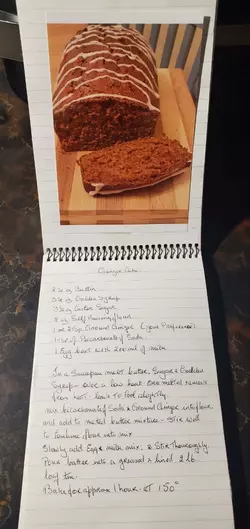 Ginger Cake.
8 oz Self Raising flour
1 or 2 tsp Ground Ginger (your Preference)
1 tsp of Bicarbonate of Soda.
1 Egg beat with 200ml of milk
In a Saucepan melt butter, Sugar & Golden
Syrup over a low heat. Once melted remove
from heat. leave To Cool slightly.
mix bicarbonate of Soda & Ground Ginger into flour
and add to melted butter mixture - Stir well
to Combine flour into mix
Slowly add Egg & milk mix, & Stir Thoroughly.
Pour batter into a greased & lined 2 lb
loaf tin.
Bake for approx 1 hour at 150°